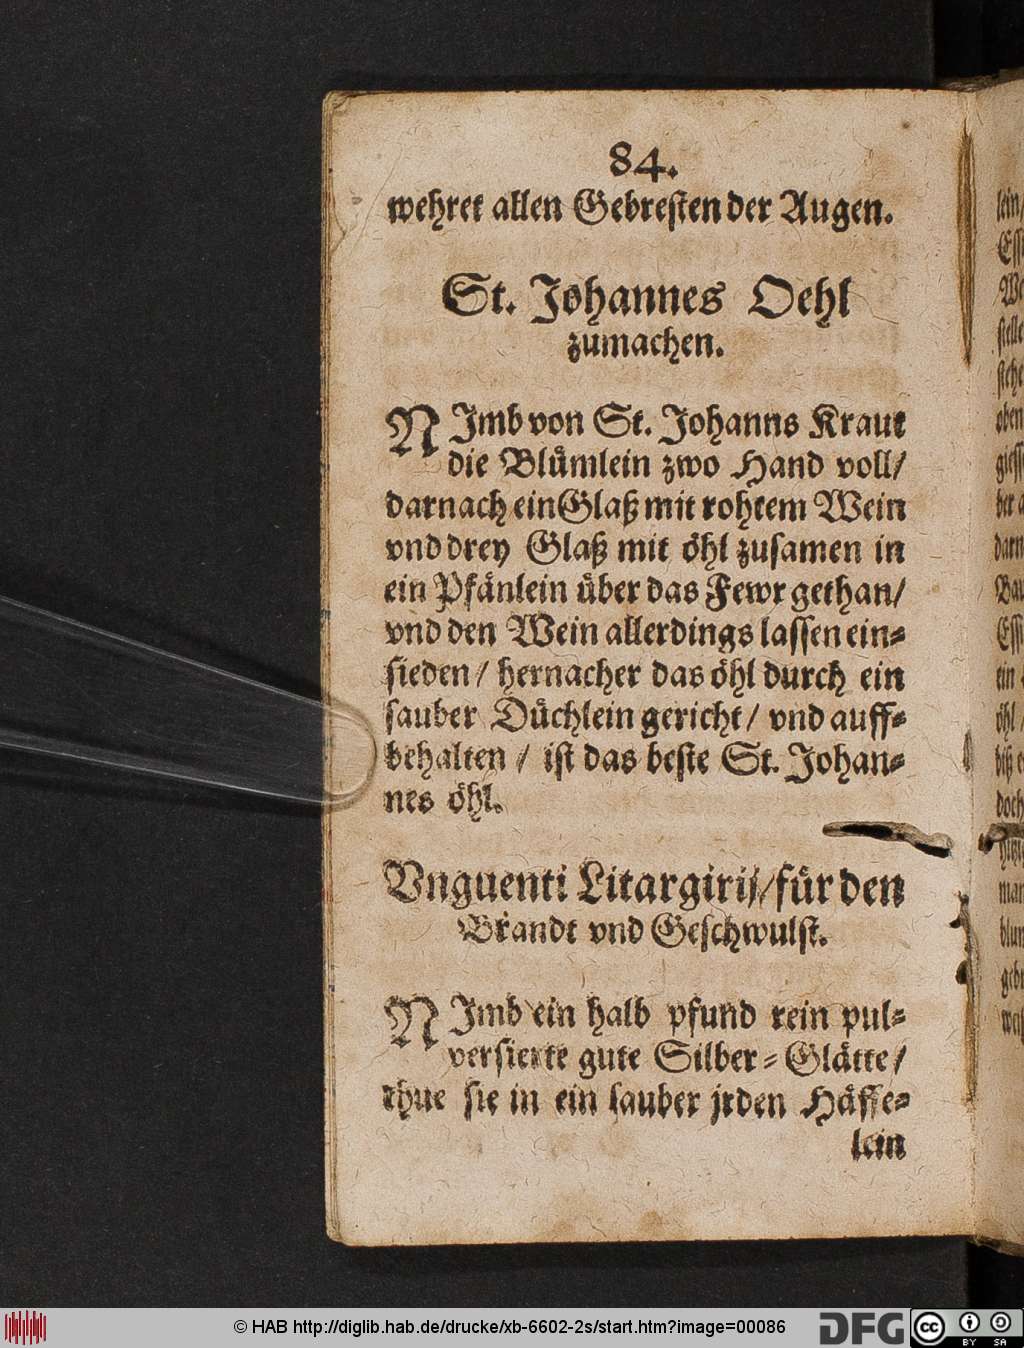 84.
wehret allen Gebresten der Augen.
St. Johannes Oehl
zumachen.
NJmb von St. Johanns Kraut
die Blümlein zwo Hand voll/
darnach ein Glaß mit rohtem Wein
vnd drey Glaß mit öhl zusamen in
ein Pfänlein über das Fewr gethan/
vnd den Wein allerdings lassen ein-
sieden/ hernacher das öhl durch ein
sauber Düchlein gericht/ vnd auff-
behalten/ ist das beste St. Johan-
nes öhl.
Vnguenti Litargirij/ für den
Brandt vnd Geschwulst.
NJmb ein halb pfund rein pul-
versierte gute Silber-Glätte/
thue sie in ein sauber jrden Häffe-
lein
© HAB http://diglib.hab.de/drucke/xb-6602-2s/start.htm?image=00086
DFG
cc BY SA